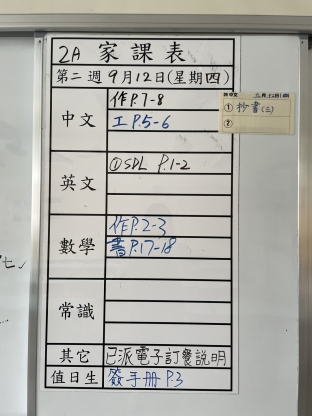 2A 家課表
第二週9月12日(星期四)
中文 作P.7-8
工P.5-6
① 抄書(三)
②
英文 ①SDL P.1-2
數學 作P.2-3
書P.17-18
常識
其它 已派電子訂餐說明
值日生 簽手册 P.3
七